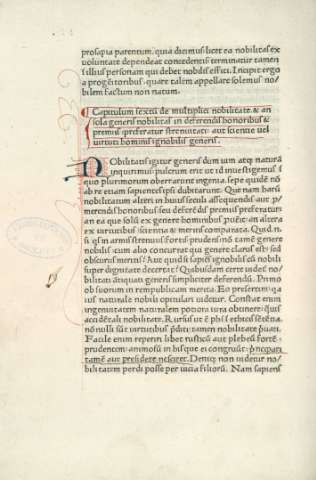 prosapia parentum. qua dicimus licet ea nobilitas ex
voluntate dependeat concedentis terminatur tamen
i illius personam qui debet nobilis effici. Incipit erg
a progēitoribus. quare talem appellare solemus no/
bilem factum non natum.
Capitulum sextū de multiplici nobilitate. & an
sola generis nobilitas in deferendis honoribus &
premiis preferatur strenuitati aut scientie uel
uirtuti hominis ignobilis generis.
Nobilitatis igitur generis dum uim atq naturā
inquirimus. pulcrum erit ut id inuestigemus
quo plurimorum oberrarunt ingenia. sepe quidē nō
ab re etiam sapientes ipsi dubitarunt. Que nam harū
nobilitatum alteri in huius seculi assequendis aut
merendis honoribus seu deferēdis premiis preferatur:
an ea que solū ex genere hominibus puēit: an altera
ex uirtutibus scientia & meritis comparata. Quid.
si qs in armis strenuus fortis prudens nō tamē generis
nobilis cum alio concurrat qui genere clarus est: sed
obscurus meritis? Aut quidā sapiēs ignobilis cū nobili
super dignitate decertat? Quibusdam certe uidet nobi/
litati atiquate generis simpliciter deferendū. Primo
ob suorum in rempublicam merita. Eo presertim qa
ius naturale nobilis opitulari uidetur. Constat enim
ingenuitatem naturalem potiora iura obtinere: quam
accidētali nobilitate. Rursus ut ē phi i ethicis sētētia.
nō nulli sūt uirtutibus pditi: tamen nobilitate puati.
Facile enim reperiri licet rusticū aut plebeiū fortē.
prudentem. animosū in hisque ei congruūt:
tamē aut presidere nesciret. Deniq non uidetur no/
bilitatem perdi posse per uicia filiorū. Nam sapiens